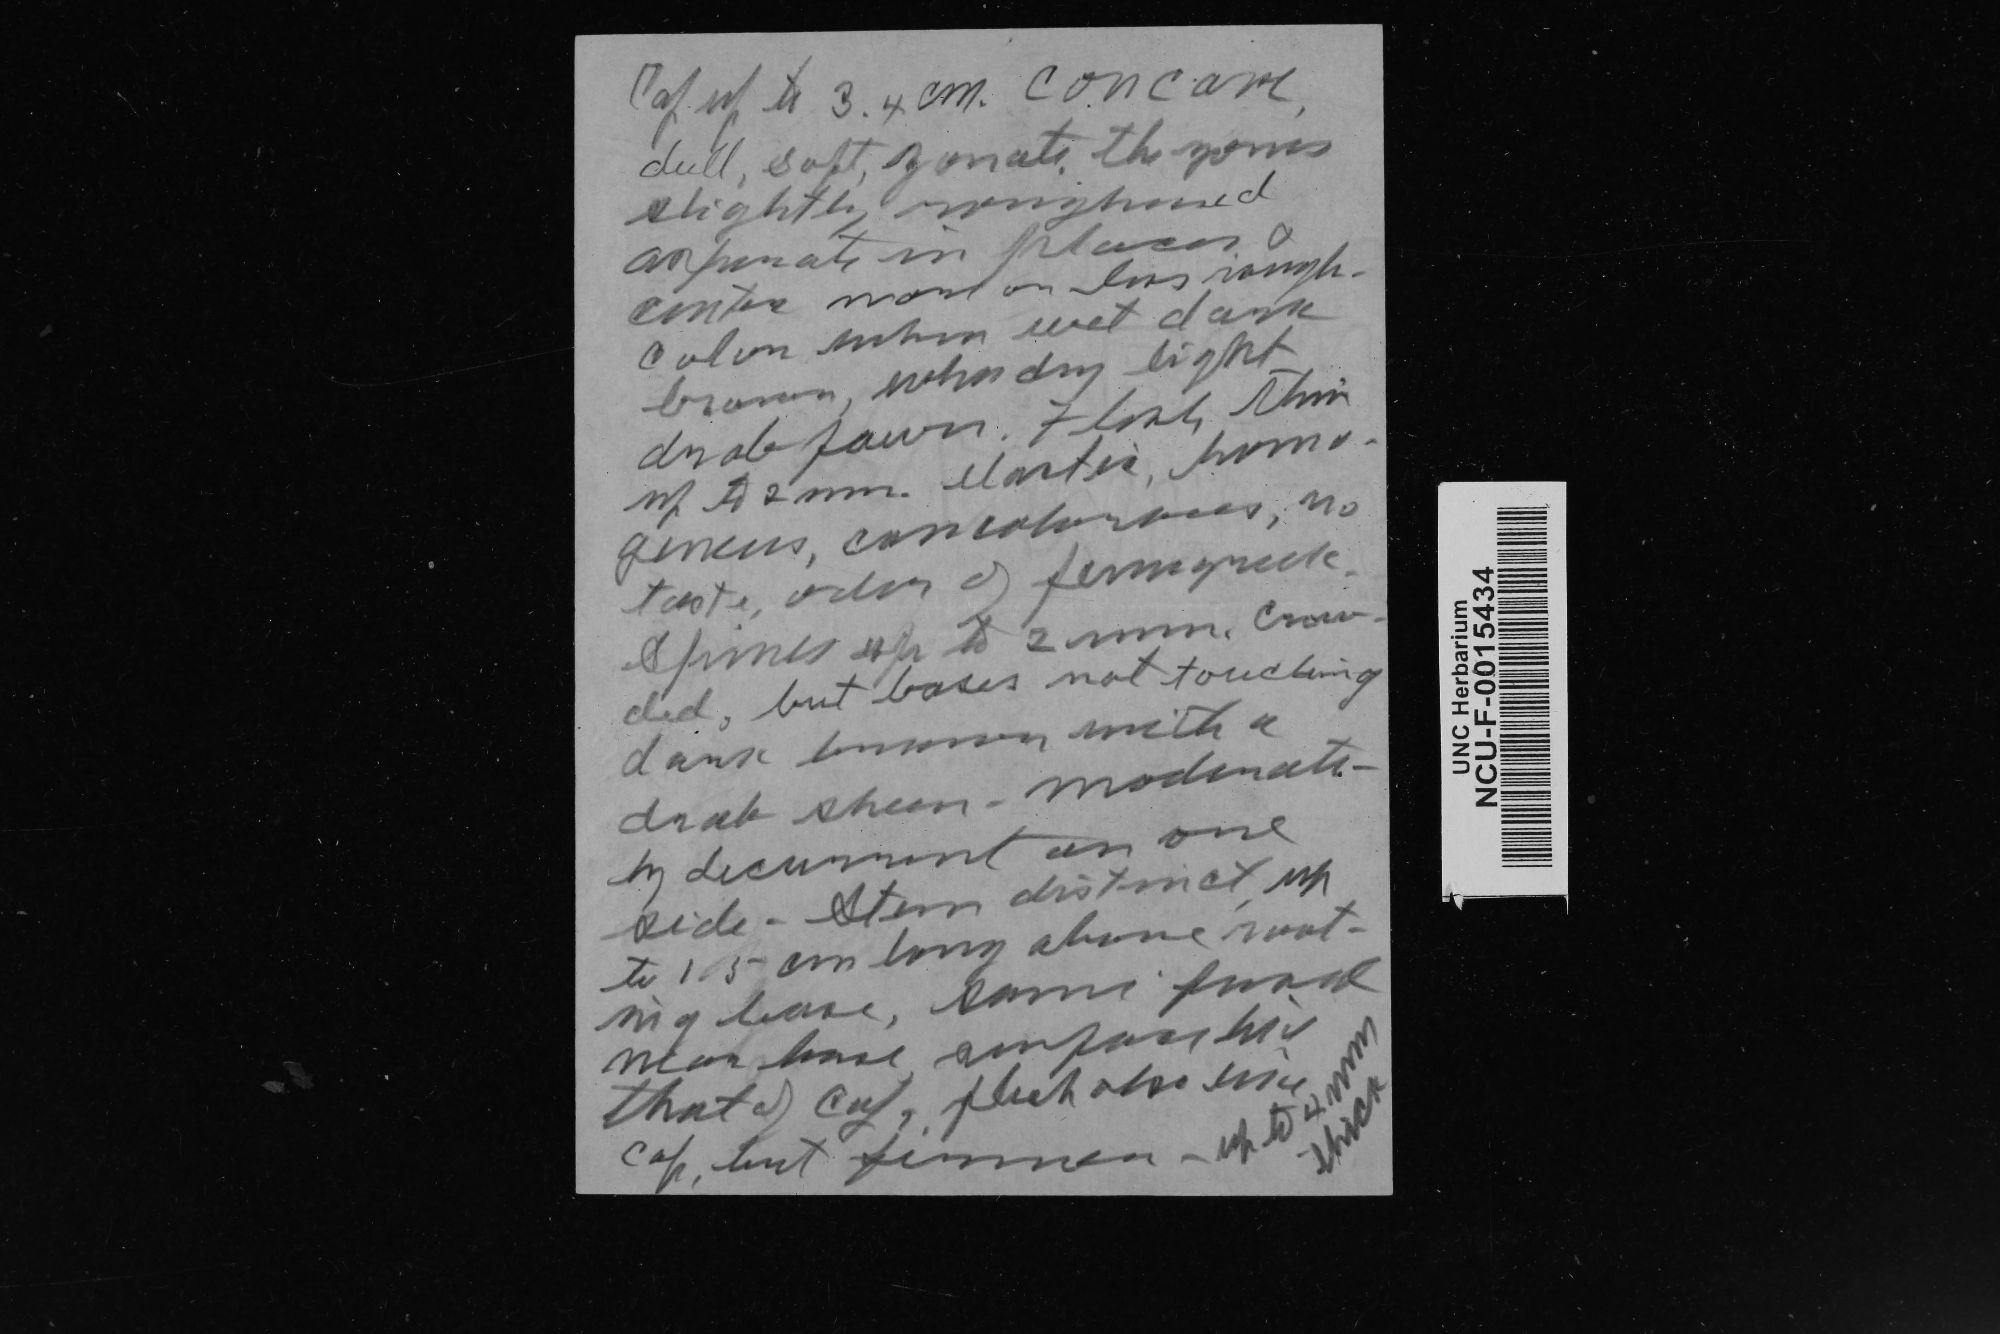 Cap up to 3.4 cm. concave,
dull, soft, zonate, the zones
slightly roughened
asperate in places &
center more or less rough.
Color when wet dark
brown, when dry light
drab fawn. Flesh thin
up to 2 mm. elastic, homo-
geneus, concolorous, no
taste, odor of fenugreek.
Spines up to 2 mm. crow-
ded, but bases not touching
dark brown with a
drab sheen - moderate-
ly decurrent on one
side - Stem distinct, up
to 1.5 cm long above root-
ing base,
near base, surface like
that of cap, flesh also like
cap, but firmer - up to 4 mm
thick
UNC Herbarium
NCU-F-0015434